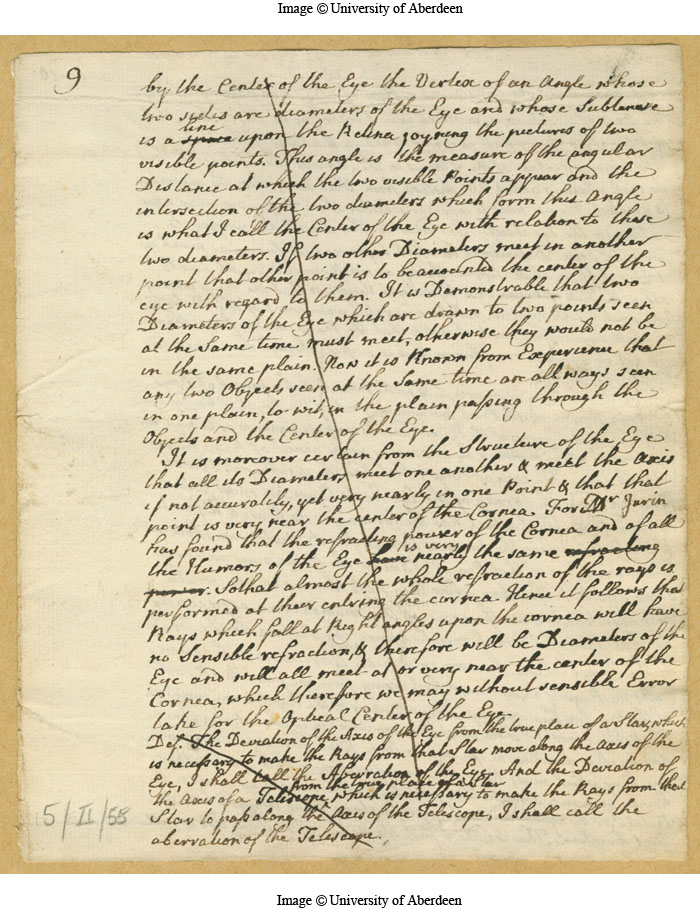 Image © University of Aberdeen
9
by the Center of the Eye the Vertex of an Angle whose
two sides are diameters of the Eye and whose Subtense
line
is a space upon the Retina joyning the pictures of two
visible points. This angle is the measure of the angular
Distance at which the two visible Points appear and the
intersection of the two diameters which form this Angle
is what I call the Center of the Eye with relation to these
two diameters. If two other Diameters meet in another
point that other point is to be accounted the center of the
eye with regard to them. It is Demonstrable that two
Diameters of the Eye which are drawn to two points seen
at the Same time must meet, otherwise they would not be
in the same plain. Now it is Known from Experience that
any two Objects seen at the Same time are all ways seen
in one plain, to wit, in the plain passing through the
Objects and the Center of the Eye.
It is moreover certain from the Structure of the Eye
that all its Diameters meet one another & meet the Axis
if not accurately, yet very nearly in one Point & that that
point is very near the center of the Cornea. For Mr Jurin
has found that the refracting power of the Cornea and of all
is very
the Humors of the Eye have nearly the same refracting
power. So that almost the whole refraction of the rays is
performed at their entring the cornea. Hence it follows that
Rays which fall at Right angles upon the cornea will have
no Sensible refraction, & therefore will be Diameters of the
Eye and will all meet at or very near the center of the
Cornea, which therefore we may without sensible Error
take for the Optical Center of the Eye.
Def. The Deviation of the Axis of the Eye from the true place of a Star, which
is necessary to make the Rays from that Star move along the Axis of the
Eye, I shall call the Aberration of the Eye. And the Deviation of
from the true place of a Star
the Axis of a Telescope, which is necessary to make the Rays from that
Star to pass along the Axis of the Telescope, I shall call the
aberration of the Telescope.
5/II/55
Image © University of Aberdeen